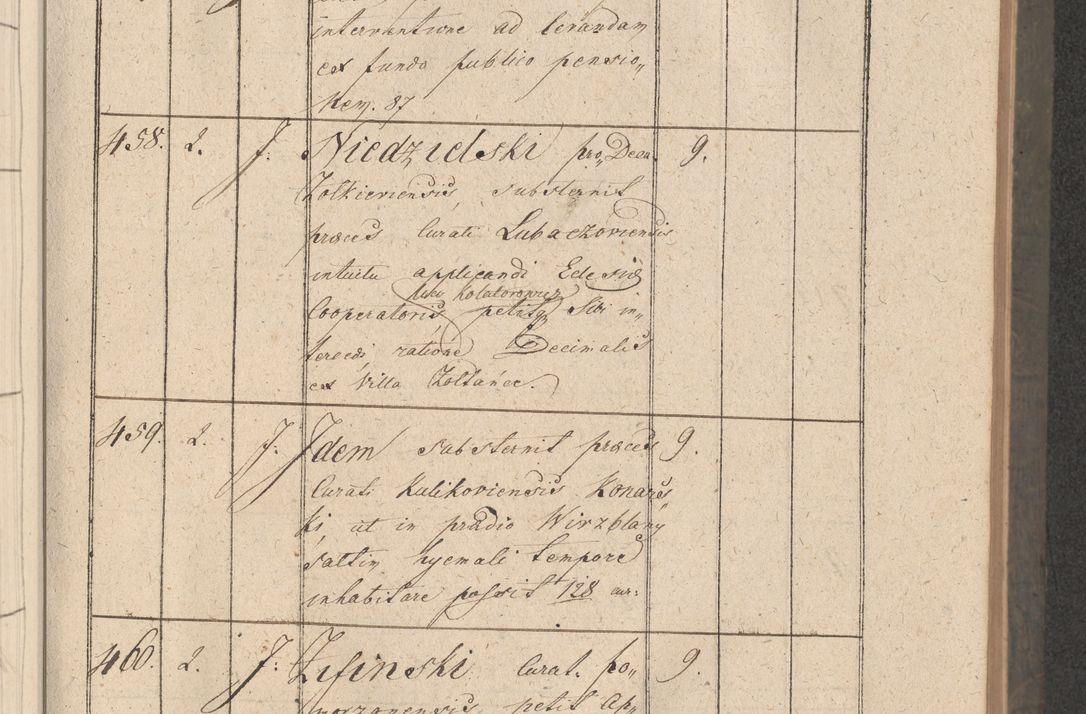 interventione ad levandam
ex fundo publico pensio„
nem. 87
458. 2. J. Niedzielski pro Deca. 9.
Zolkieviensis, substernit
preces Curati Lubaczoviensis
intuitu applicandi Ecclesiæ
suæ Kolatorowicz
Cooperatoris petitq Sibi in„
tercedi ratione Decimalis
ex Villa Zoltańce.
459. 2. J. Idem substernit preces 9.
Curati Kulikoviensis Konars
ki, ut in prædio Wirzblany
saltim hyemali tempore
inhabitare possit 128 cur:
460. 2. J. Lisinski Curat. po„ 9.
morzanensis petit Ap„